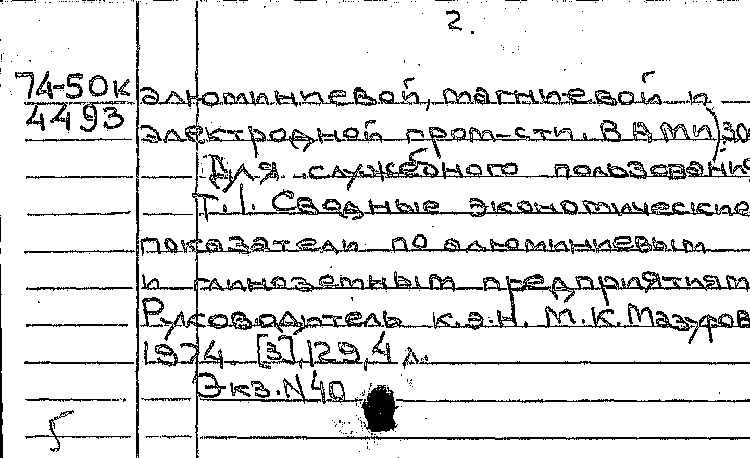 2.
74-50к алюминиевой, магниевой и
4493 электродной пром-сти. ВАМИ) 30
Для служебного пользования
Т.1. Сводные экономические
показатели по алюминиевым
и глиноземным предприятиям
Руководитель к.э.н. М.К. Мазуров
1974. [3], 129, 4 л.
Экз. N 40
5